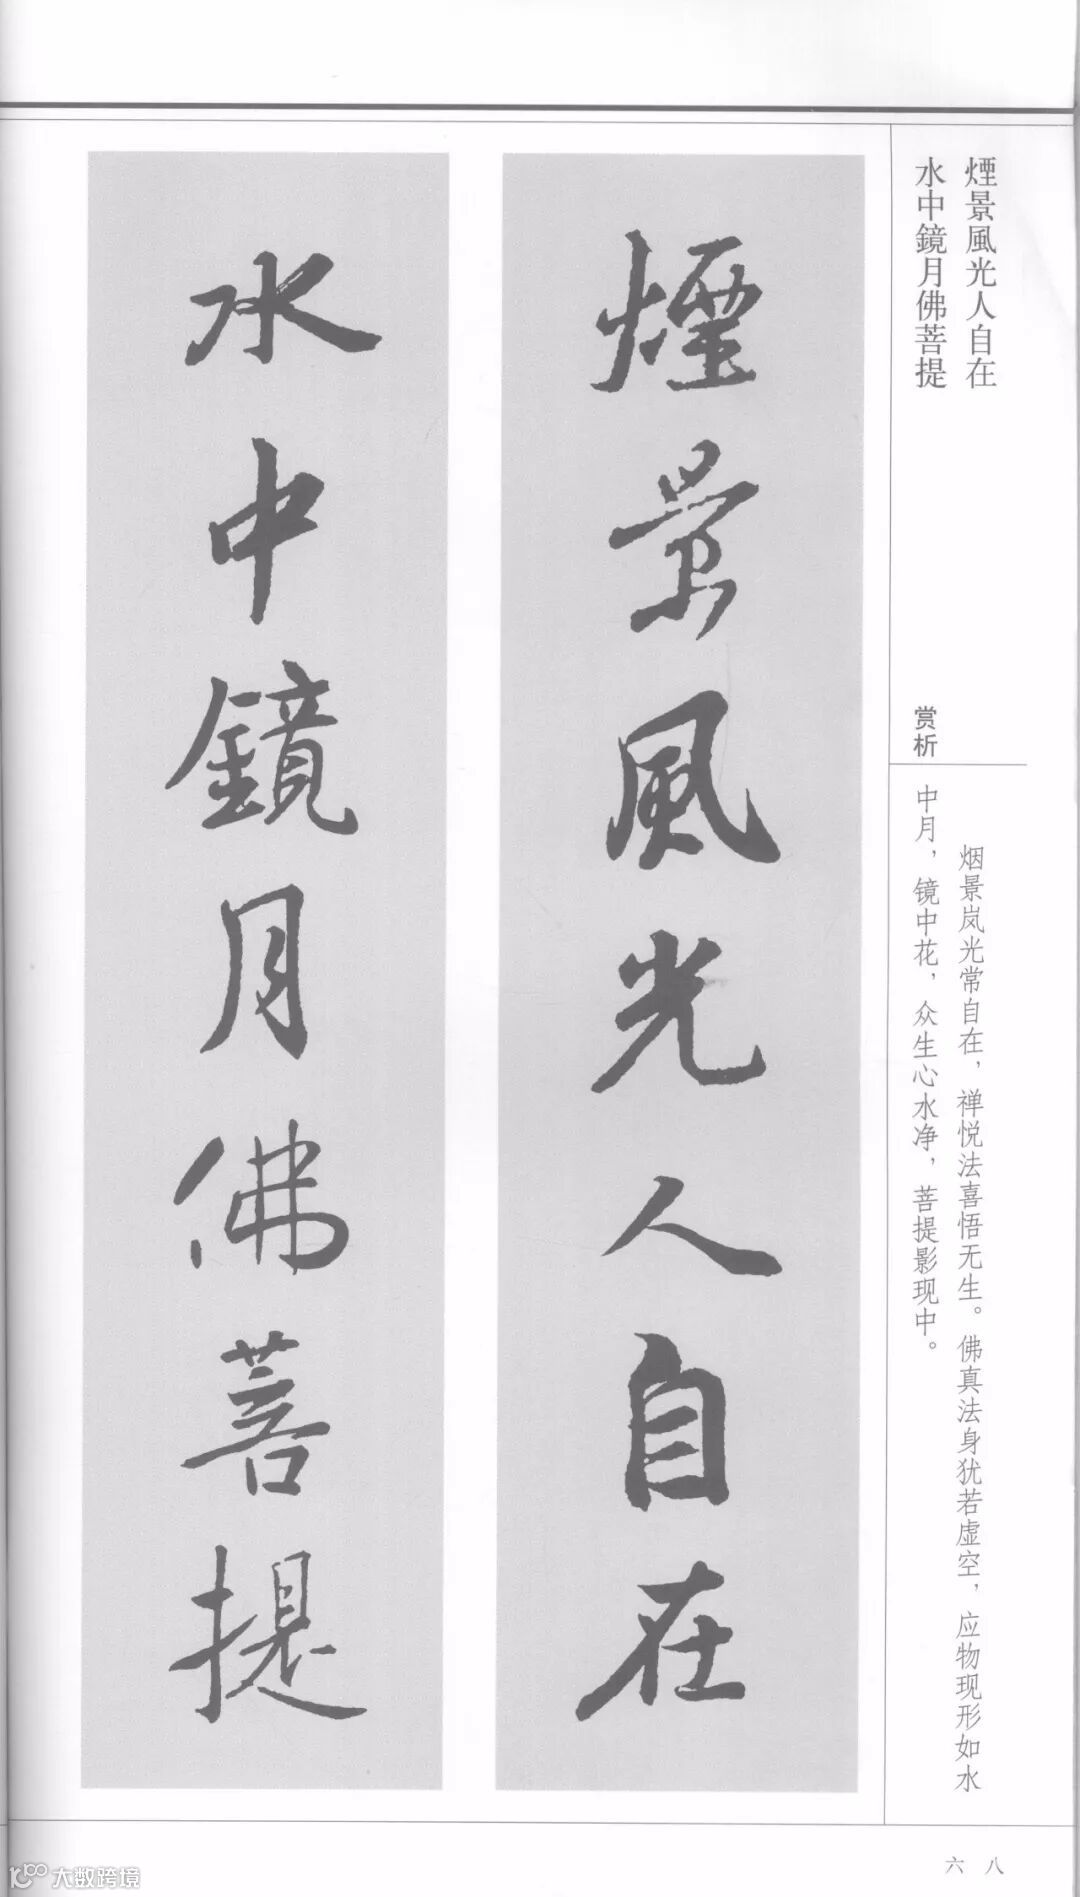 煙景風光人自在
水中鏡月佛菩提
赏析
烟景岚光常自在，禅悦法喜悟无生。佛真法身犹若虚空，应物现形如水
中月，镜中花，众生心水净，菩提影现中。
煙景風光人自在
水中鏡月佛菩提
六八
大数跨境